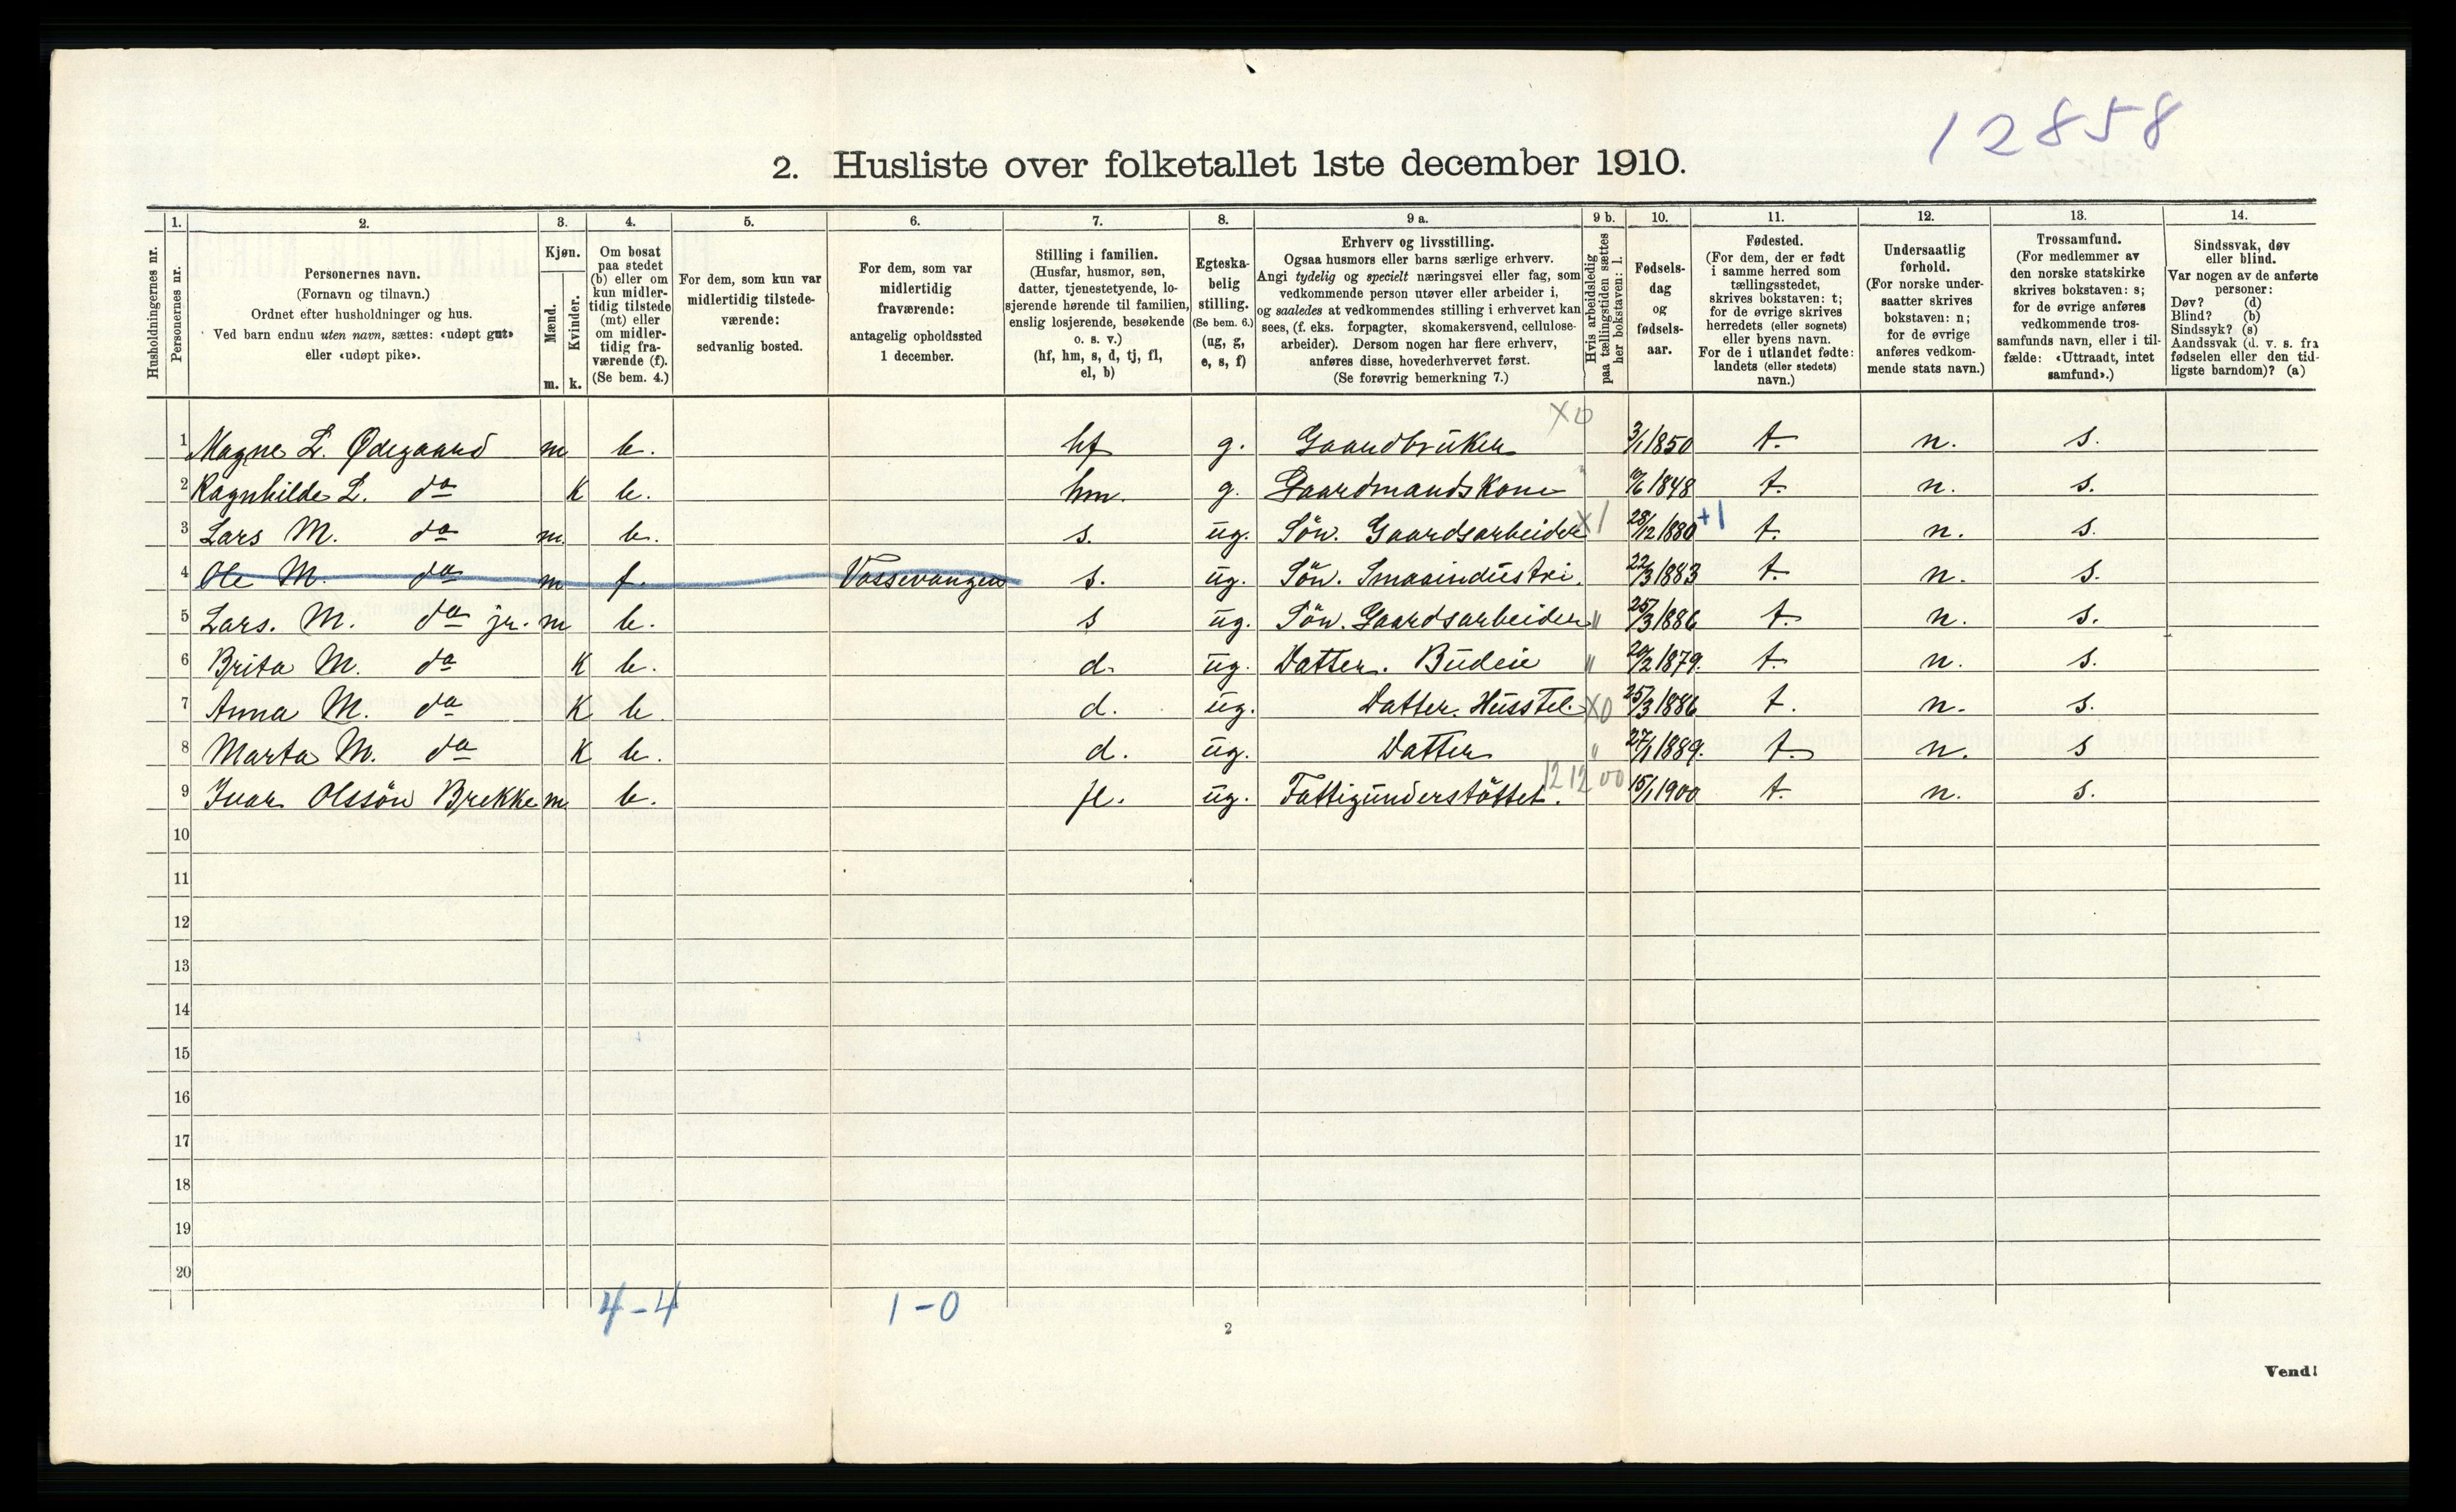 12858
2. Husliste over folketallet 1ste december 1910.
Husholdningernes nr.
1.
Personernes nr.
2.
Personernes navn.
(Fornavn og tilnavn.)
Ordnet efter husholdninger og hus.
Ved barn endnu uten navn, sættes: «udøpt gut»
eller «udøpt pike».
3.
Kjøn.
Mænd.
m.
Kvinder.
k.
4.
Om bosat
paa stedet
(b) eller om
kun midler-
tidig tilstede
(mt) eller
om midler-
tidig fra-
værende (f).
(Se bem. 4.)
5.
For dem, som kun var
midlertidig tilstede-
værende:
sedvanlig bosted.
6.
For dem, som var
midlertidig
fraværende:
antagelig opholdssted
1 december.
7.
Stilling i familien.
(Husfar, husmor, søn,
datter, tjenestetyende, lo-
sjerende hørende til familien,
enslig losjerende, besøkende
o. s. v.)
(hf, hm, s, d, tj, fl,
el, b)
8.
Egteska-
belig
stilling.
(Se bem. 6.)
(ug, g,
e, s, f)
9 a.
Erhverv og livsstilling.
Ogsaa husmors eller barns særlige erhverv.
Angi tydelig og specielt næringsvei eller fag, som
vedkommende person utøver eller arbeider i,
og saaledes at vedkommendes stilling i erhvervet kan
sees, (f. eks. forpagter, skomakersvend, cellulose-
arbeider). Dersom nogen har flere erhverv,
anføres disse, hovederhvervet først.
(Se forøvrig bemerkning 7.)
9 b.
Hvis arbeidsledig
paa tællingstiden sættes
her bokstaven: l.
10.
Fødsels-
dag
og
fødsels-
aar.
11.
Fødested.
(For dem, der er født
i samme herred som
tællingsstedet,
skrives bokstaven: t;
for de øvrige skrives
herredets (eller sognets)
eller byens navn.
For de i utlandet fødte:
landets (eller stedets)
navn.)
12.
Undersaatlig
forhold.
(For norske under-
saatter skrives
bokstaven: n;
for de øvrige
anføres vedkom-
mende stats navn.)
13.
Trossamfund.
(For medlemmer av
den norske statskirke
skrives bokstaven: s;
for de øvrige anføres
vedkommende tros-
samfunds navn, eller i til-
fælde: «Uttraadt, intet
samfund».)
14.
Sindssvak, døv
eller blind.
Var nogen av de anførte
personer:
Døv? (d)
Blind? (b)
Sindssyk? (s)
Aandssvak (d. v. s. fra
fødselen eller den tid-
ligste barndom)? (a)
X0
1 Magne L. Ødegaard m b. hf g. Gaardbruker 3/1 1850 t. n. s.
2 Ragnhilde L. do K b. hm. g. Gaardmandskone 1848 t. n. s.
3 Lars M. do m. b. s. ug. Sön. Gaardsarbeider X1 28/12 1880 +1 t. n. s.
4 Ole M. do m f. Vossevangen s. ug. Sön. Smaaindustri. 22/3 1883 t. n. s.
5 Lars. M. do jr. m b. s ug. Sön. Gaardsarbeider " 25/3 1886 t. n. s.
6 Brita M. do K b. d. ug. Datter. Budeie " 20/2 1879. t. n. s.
7 Anna M. do K b. d. ug. Datter. Husstel. X0 25/3 1886 t. n. s.
8 Marta M. do K b. d. ug. Datter " 27/1 1889. t. n. s
9 Ivar Olssön Brekke m b. fl. ug. Fattigunderstöttet. 121200 15/1 1900 t. n. s.
10
11
12
13
14
15
16
17
18
19
20
4-4 1-0
2
Vend!